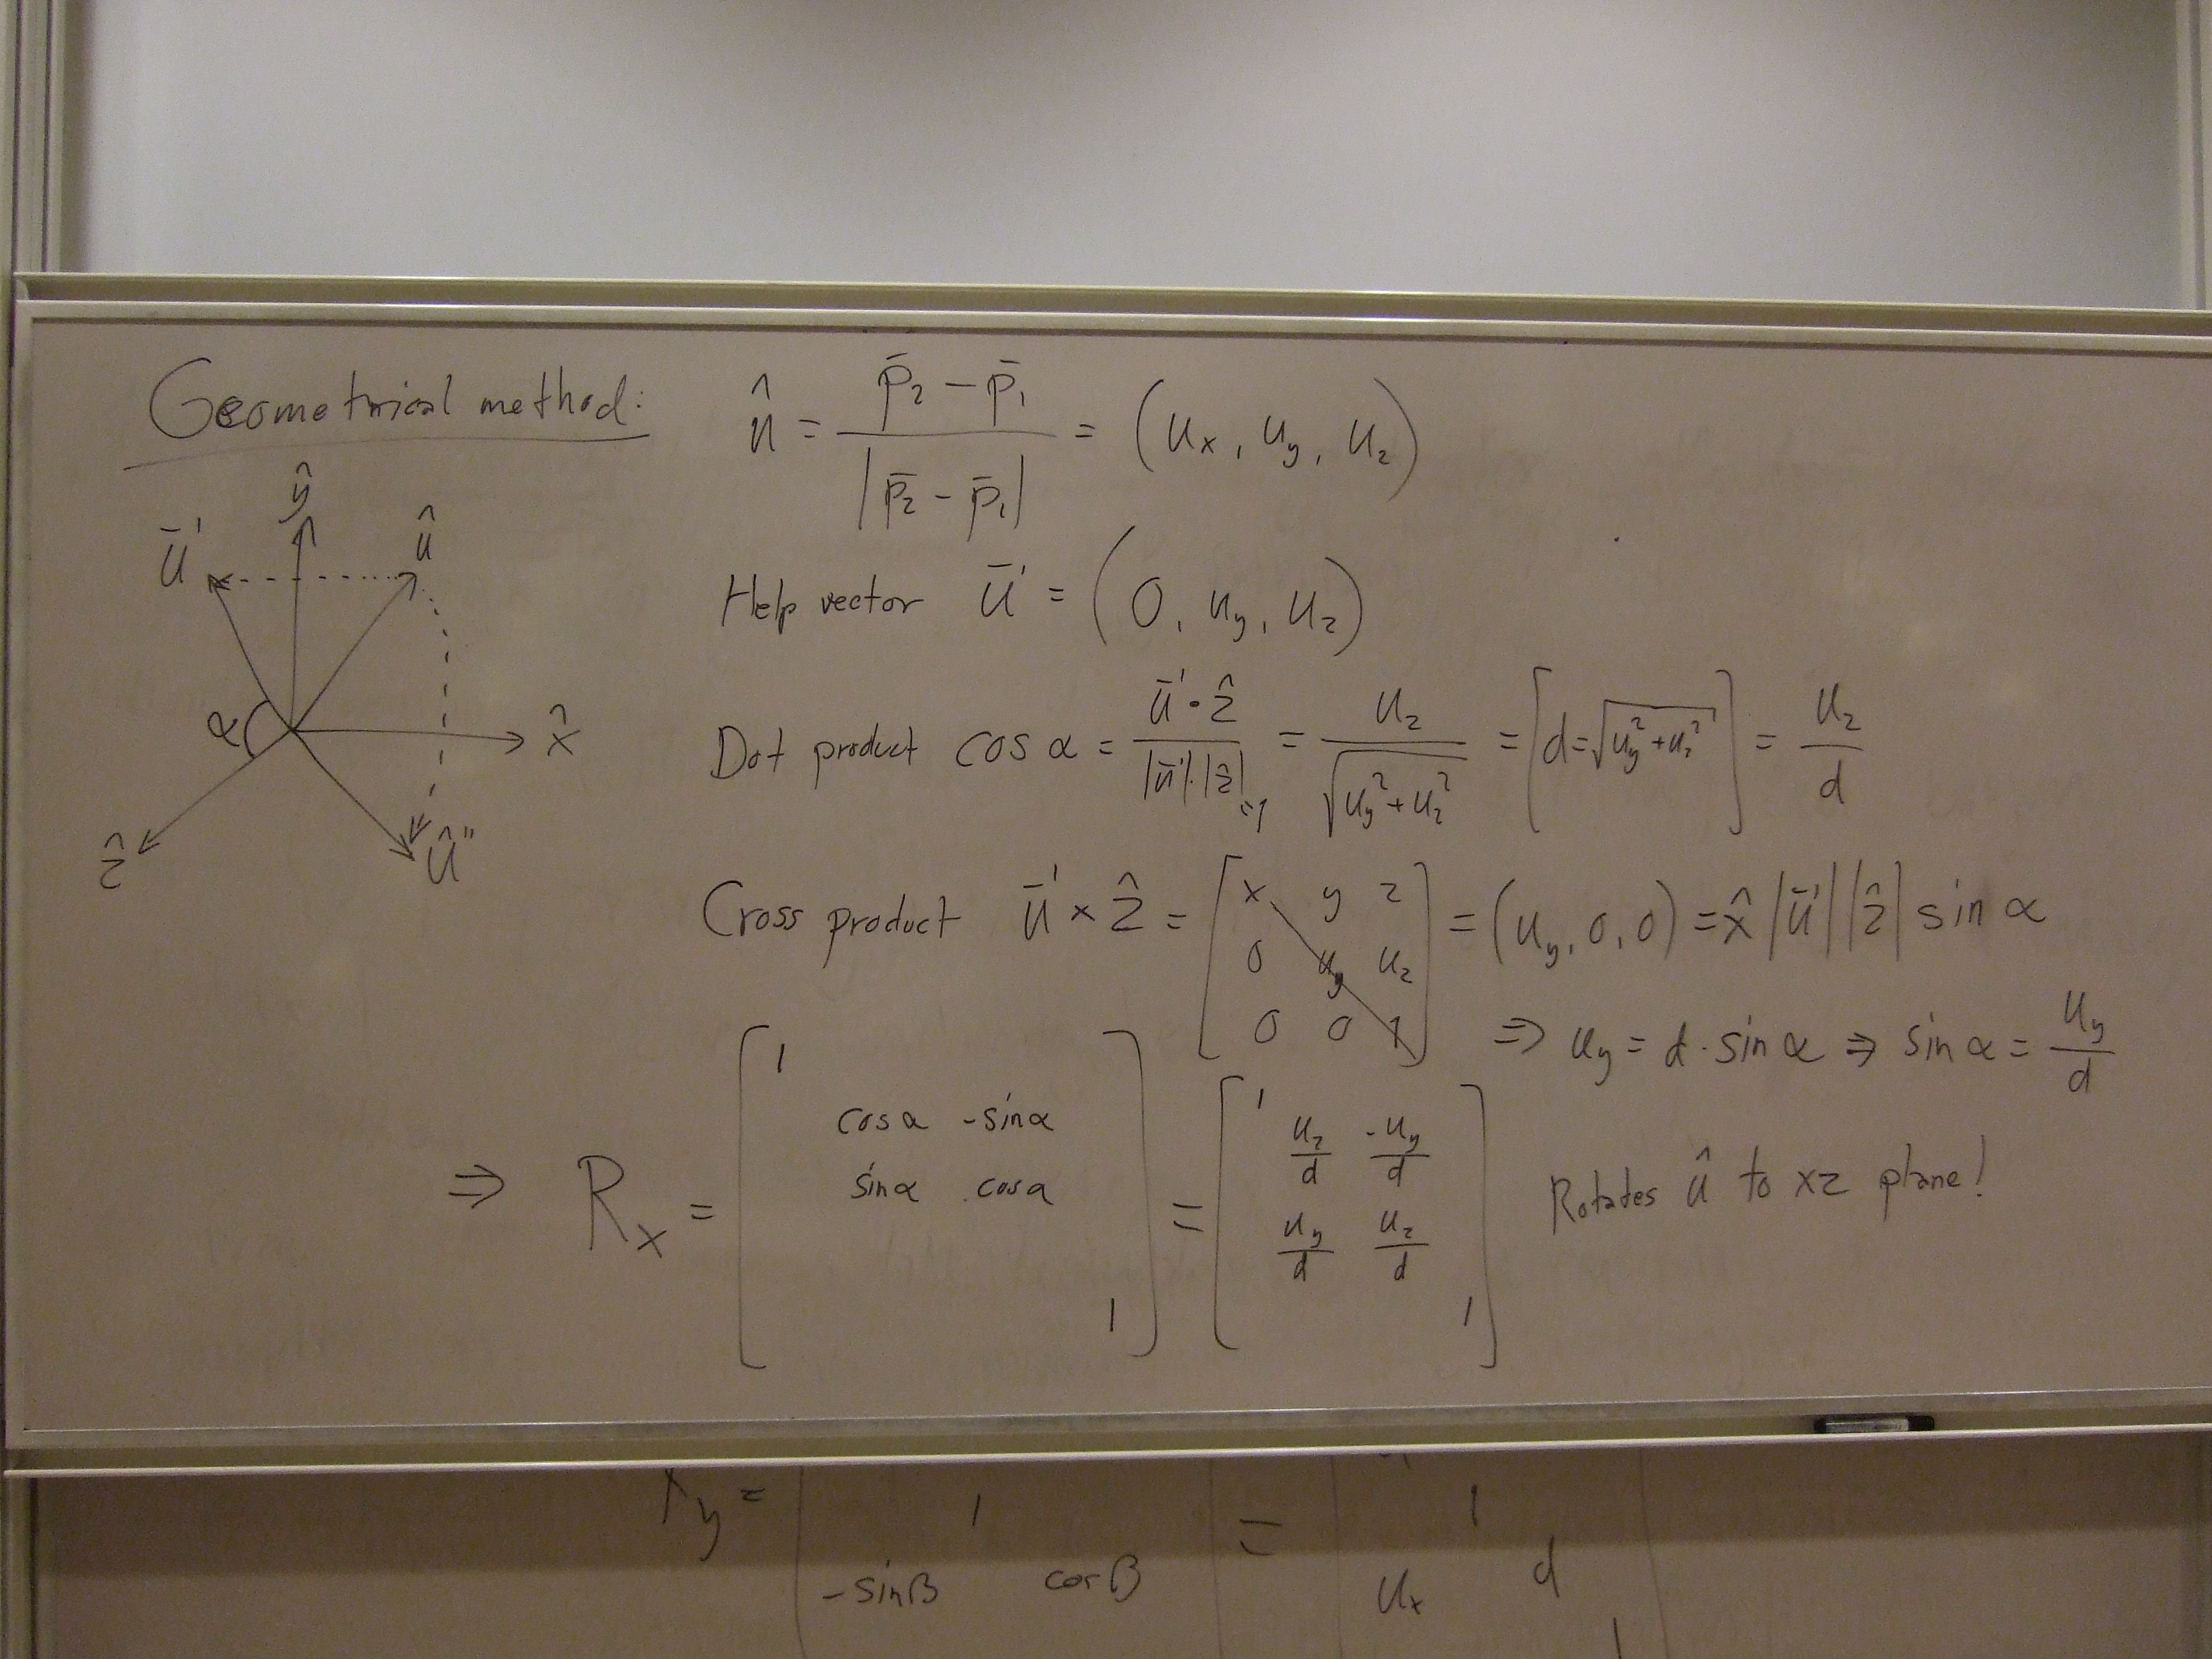 Geometrical method:
û = (p̄₂ − p̄₁) / |p̄₂ − p̄₁| = (uₓ, u_y, u_z)
ŷ
ū'
û
α
x̂
ẑ
û''
Help vector ū' = (0, u_y, u_z)
Dot product cos α = (ū' · ẑ) / (|ū'| · |ẑ|) =1 = u_z / √(u_y² + u_z²) = [d = √(u_y² + u_z²)] = u_z / d
Cross product ū' × ẑ = [x y z
0 u_y u_z
0 0 1] = (u_y, 0, 0) = x̂ |ū'| |ẑ| sin α
⇒ u_y = d · sin α ⇒ sin α = u_y / d
⇒ Rₓ = [1
cos α -sin α
sin α cos α
1] = [1
u_z/d -u_y/d
u_y/d u_z/d
1] Rotates û to xz plane!
y = 1 = 1
-sinβ cosβ uₓ d
1